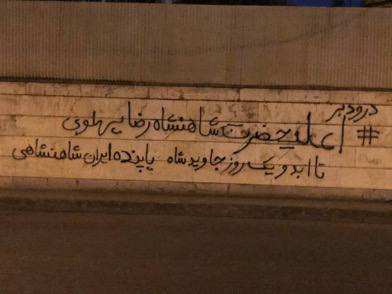 درود بر
# اعلیحضرت شاهنشاه رضا پهلوی
تا ابد و یک روز جاوید شاه پاینده ایران شاهنشاهی